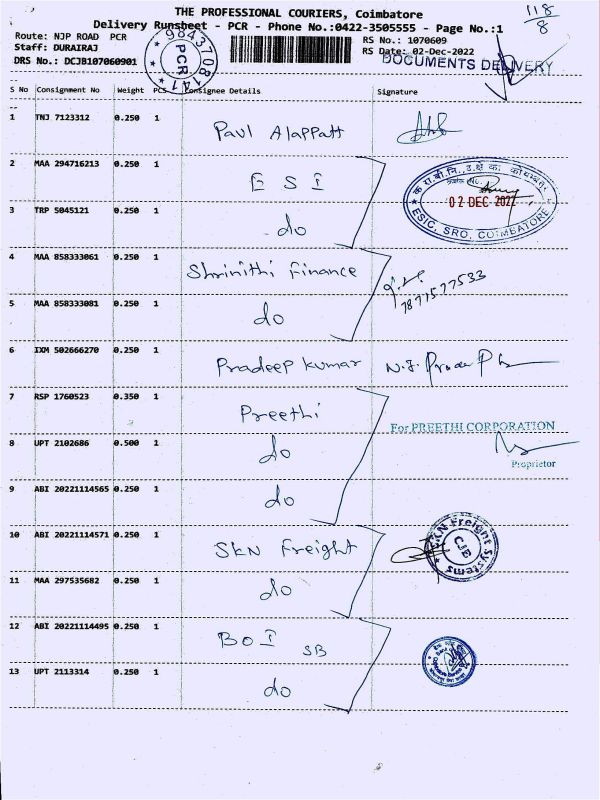 THE PROFESSIONAL COURIERS, Coimbatore
118
8
Delivery Runsheet - PCR - Phone No.:0422-3505555 - Page No.:1
Route: NJP ROAD PCR
RS No.: 1070609
Staff: DURAIRAJ
RS Date: 02-Dec-2022
DRS No.: DCJB107060901
DOCUMENTS DELIVERY
PCR
S No Consignment No Weight PCS Consignee Details Signature
1 TNJ 7123312 0.250 1 Paul Alappatt
2 MAA 294716213 0.250 1 E S I
02 DEC 2022
ESIC, SRO, COIMBATORE
3 TRP 5045121 0.250 1 do
4 MAA 858333061 0.250 1 Shrinithi Finance
7871577533
5 MAA 858333081 0.250 1 do
6 IXM 502666270 0.250 1 Pradeep kumar
7 RSP 1760523 0.350 1 Preethi
For PREETHI CORPORATION
8 UPT 2102686 0.500 1 do
Proprietor
9 ABI 20221114565 0.250 1 do
10 ABI 20221114571 0.250 1 SKN Freight
SKN Freight Systems
CJB
11 MAA 297535682 0.250 1 do
12 ABI 20221114495 0.250 1 BOI SB
13 UPT 2113314 0.250 1 do